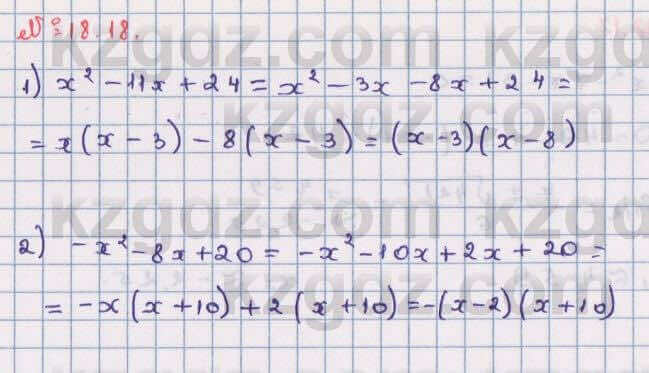 № 18.18.
1) x² - 11x + 24 = x² - 3x - 8x + 24 =
= x(x - 3) - 8(x - 3) = (x - 3)(x - 8)
2) -x² - 8x + 20 = -x² - 10x + 2x + 20 =
= -x(x + 10) + 2(x + 10) = -(x - 2)(x + 10)
kzgdz.com kzgdz.com
kzgdz.com
kzgdz.com
kzgdz.com